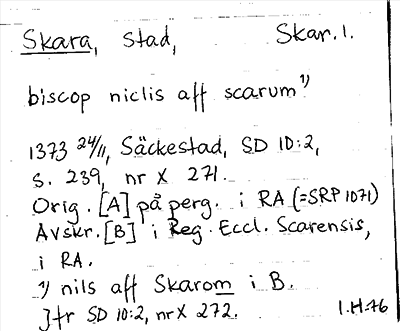 Skara, stad, Skar. 1.
biscop niclis aff scarum 1)
1373 24/11, Säckestad, SD 10:2,
s. 239, nr X 271.
Orig. [A] på perg. i RA (=SRP 1071)
Avskr. [B] i Reg. Eccl. Scarensis,
i RA.
1) nils aff Skarom i B.
Jfr SD 10:2, nr X 272. I.H-76